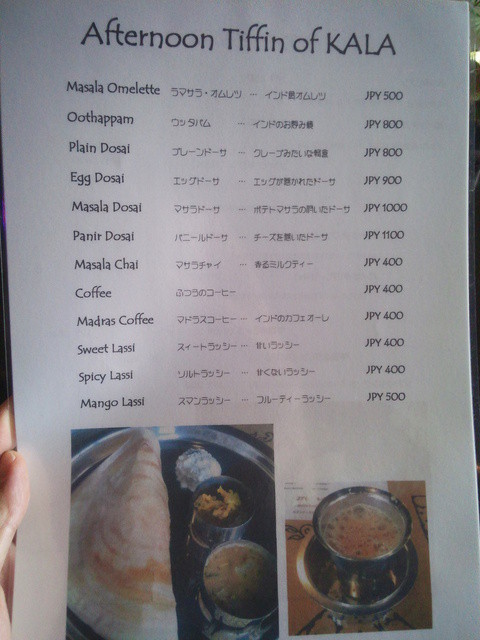 Afternoon Tiffin of KALA
Masala Omelette ラマサラ・オムレツ … インド風オムレツ JPY 500
Oothappam ウッタパム … インドのお好み焼 JPY 800
Plain Dosai プレーンドーサ … クレープみたいな軽食 JPY 800
Egg Dosai エッグドーサ … エッグが巻かれたドーサ JPY 900
Masala Dosai マサラドーサ … ポテトマサラの入いたドーサ JPY 1000
Panir Dosai パニールドーサ … チーズを巻いたドーサ JPY 1100
Masala Chai マサラチャイ … 香るミルクティー JPY 400
Coffee ふつうのコーヒー JPY 400
Madras Coffee マドラスコーヒー … インドのカフェオーレ JPY 400
Sweet Lassi スィートラッシー … 甘いラッシー JPY 400
Spicy Lassi ソルトラッシー … 甘くないラッシー JPY 400
Mango Lassi スマンラッシー … フルーティーラッシー JPY 500